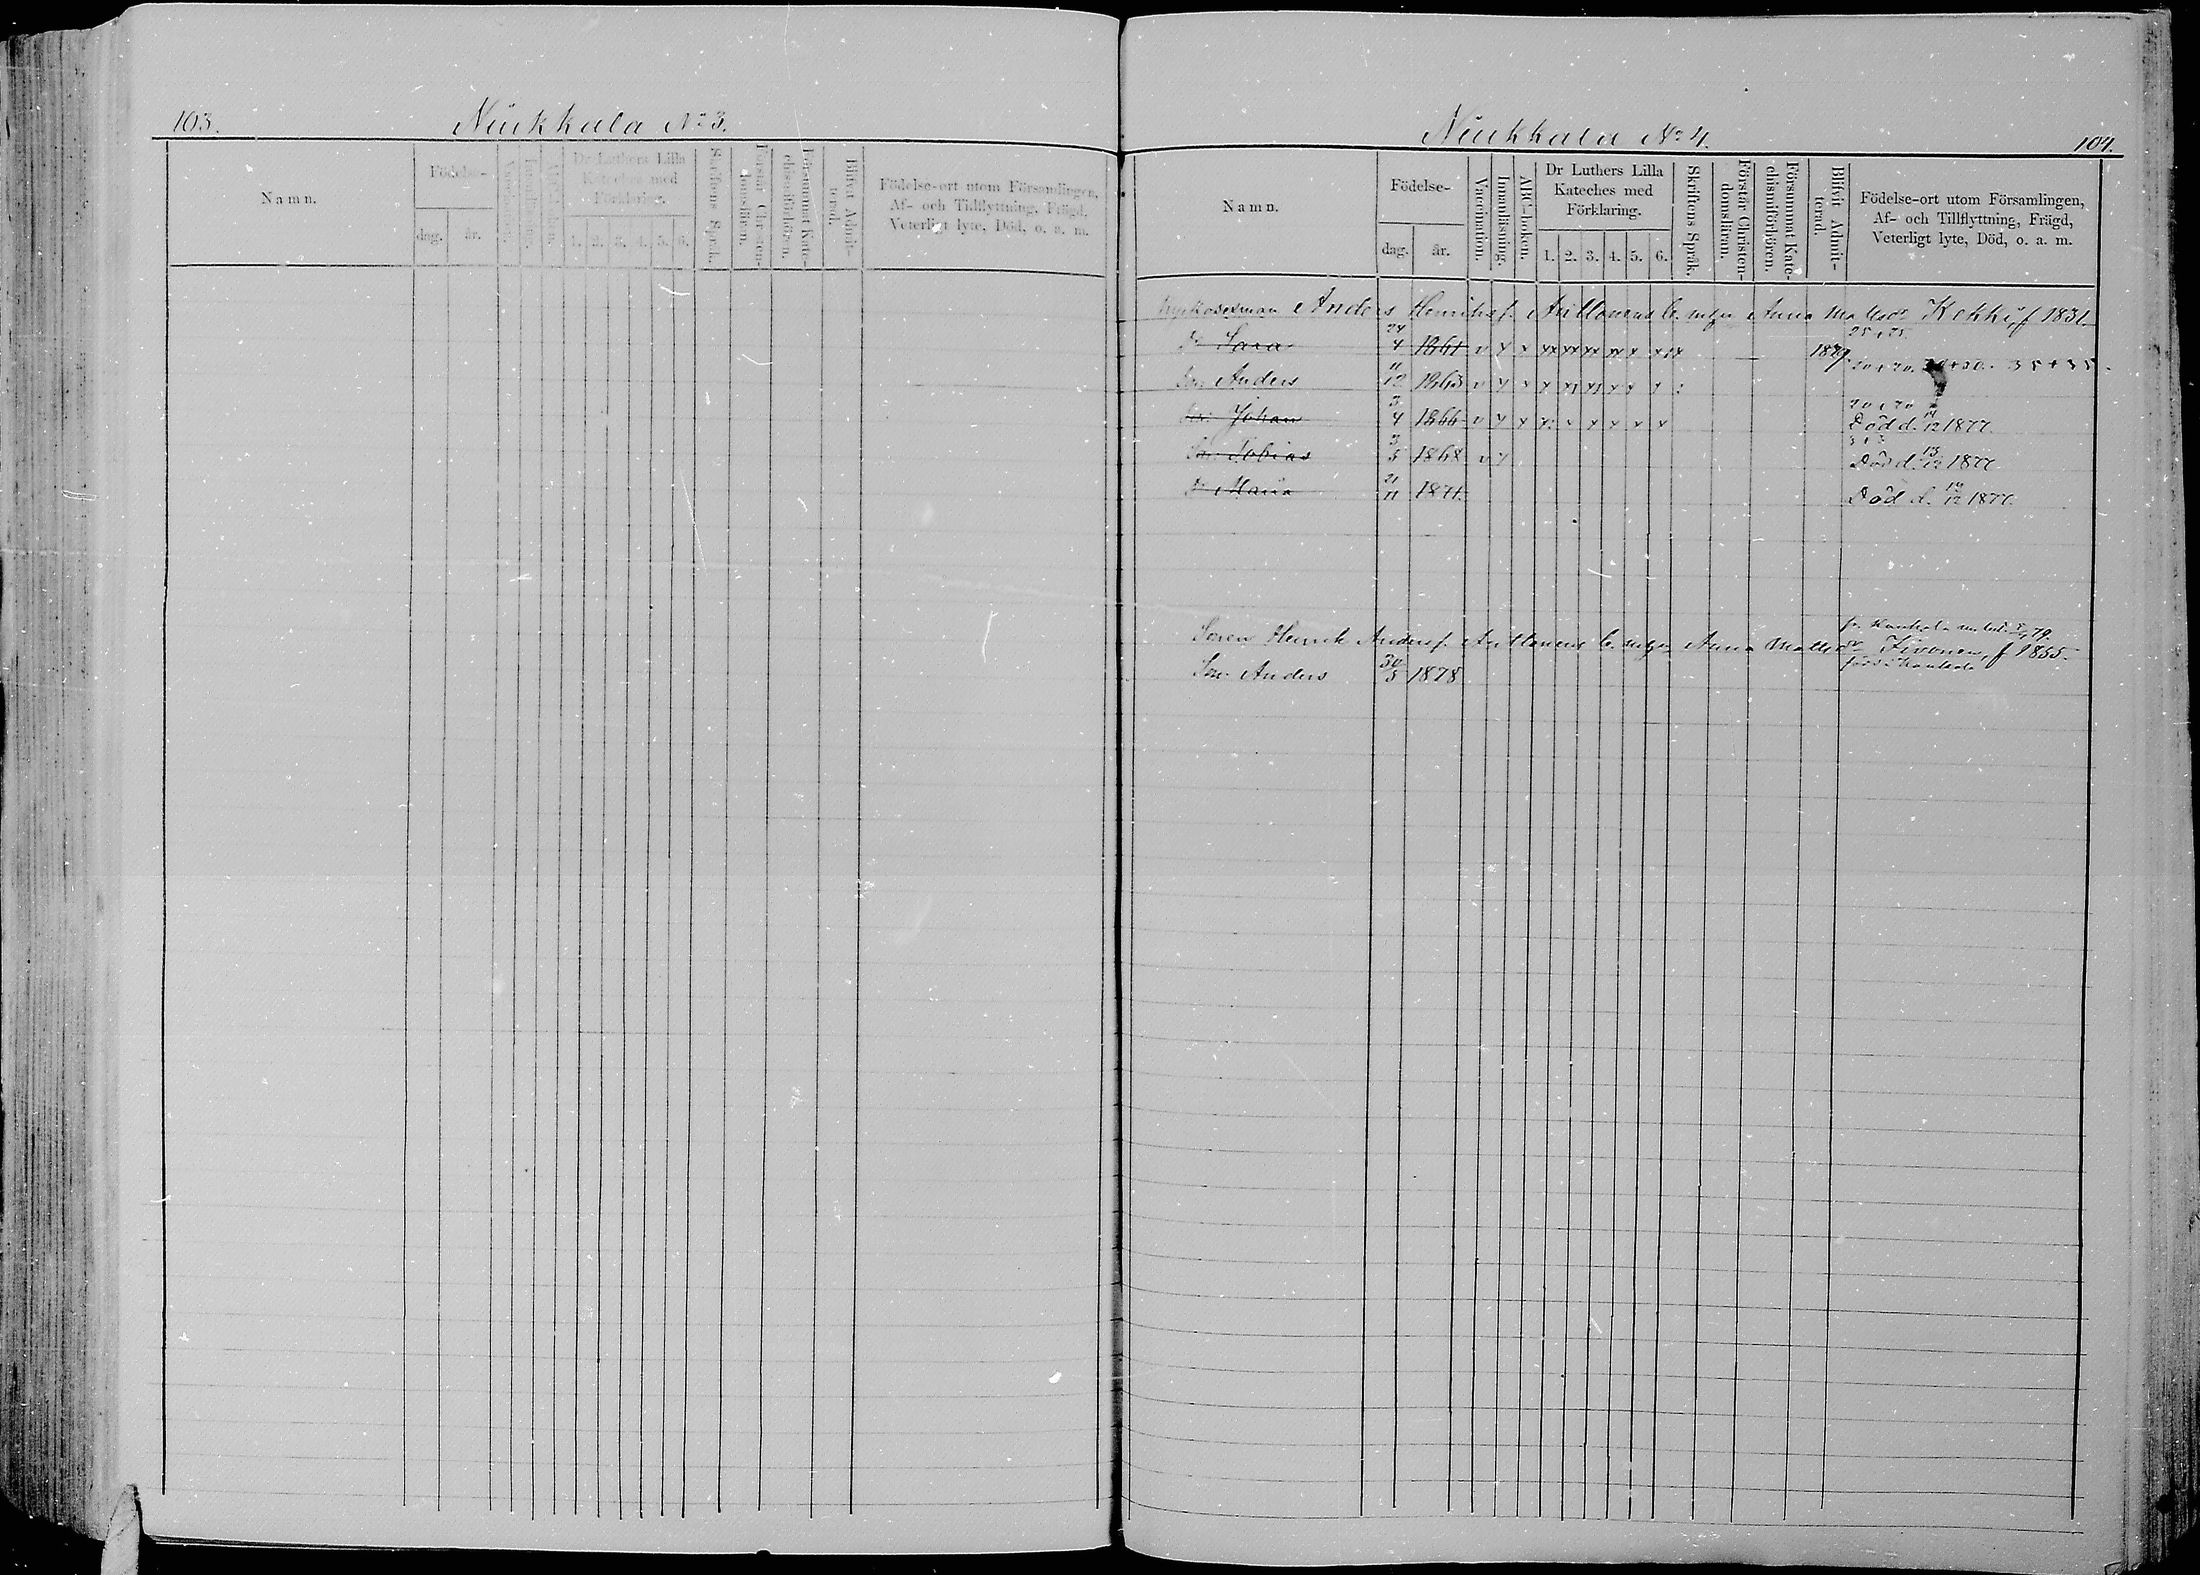 103.
Niukkala No 3.
Namn.
Födelse-
dag.
år.
Vaccination.
Innanläsning.
ABC-boken.
Dr Luthers Lilla
Kateches med
Förklaring.
1. 2. 3. 4. 5. 6.
Skriftens Språk.
Förstår Christen-
domsläran.
Försummat Kate-
chismiförhören.
Blifvit Admit-
terad.
Födelse-ort utom Församlingen,
Af- och Tillflyttning, Frägd,
Veterligt lyte, Död, o. a. m.
Niukkala No 4.
104.
Namn.
Födelse-
dag.
år.
Vaccination.
Innanläsning.
ABC-boken.
Dr Luthers Lilla
Kateches med
Förklaring.
1. 2. 3. 4. 5. 6.
Skriftens Språk.
Förstår Christen-
domsläran.
Försummat Kate-
chismiförhören.
Blifvit Admit-
terad.
Födelse-ort utom Församlingen,
Af- och Tillflyttning, Frägd,
Veterligt lyte, Död, o. a. m.
Anders Henriksf. Anttonens Anna Kekki, f 1831.
Sara 24/4 1861 1879
Son: Anders 11/12 1863
Son: Johan 3/4 1866 Död d. 14/12 1877.
Son: Tobias 3/5 1868 Död d. 13/12 1877
D: Maria 21/11 1871. Död d. 14/12 1877.
Sonen Henrik Andersf. Anttonens Anna f 1855.
Son: Anders 30/5 1878